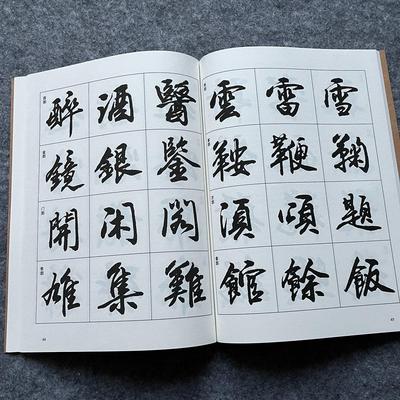 醉酒醫
鏡銀鑒
開閑閣
雄集雞
44
雲雷雪
鞍鞭鞠
須頌題
館餘飯